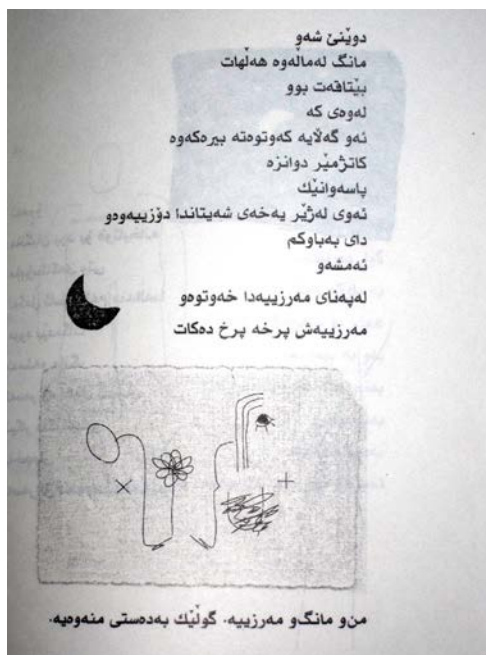 دوێنێ شەو
مانگ لەماڵەوە هەڵهات
بێتاقەت بوو
لەوەی كە
ئەو گەڵایە كەوتوەتە بیرەكەوە
كاتژمێر دوانزە
پاسەوانێك
ئەوی لەژێر یەخەی شەیتاندا دۆزییەوەو
دای بەباوكم
ئەمشەو
لەپەنای مەرزییەدا خەوتوەو
مەرزییەش پرخە پرخ دەكات
من‌و مانگ‌و مەرزییە. گوڵێك بەدەستی منەوەیە.